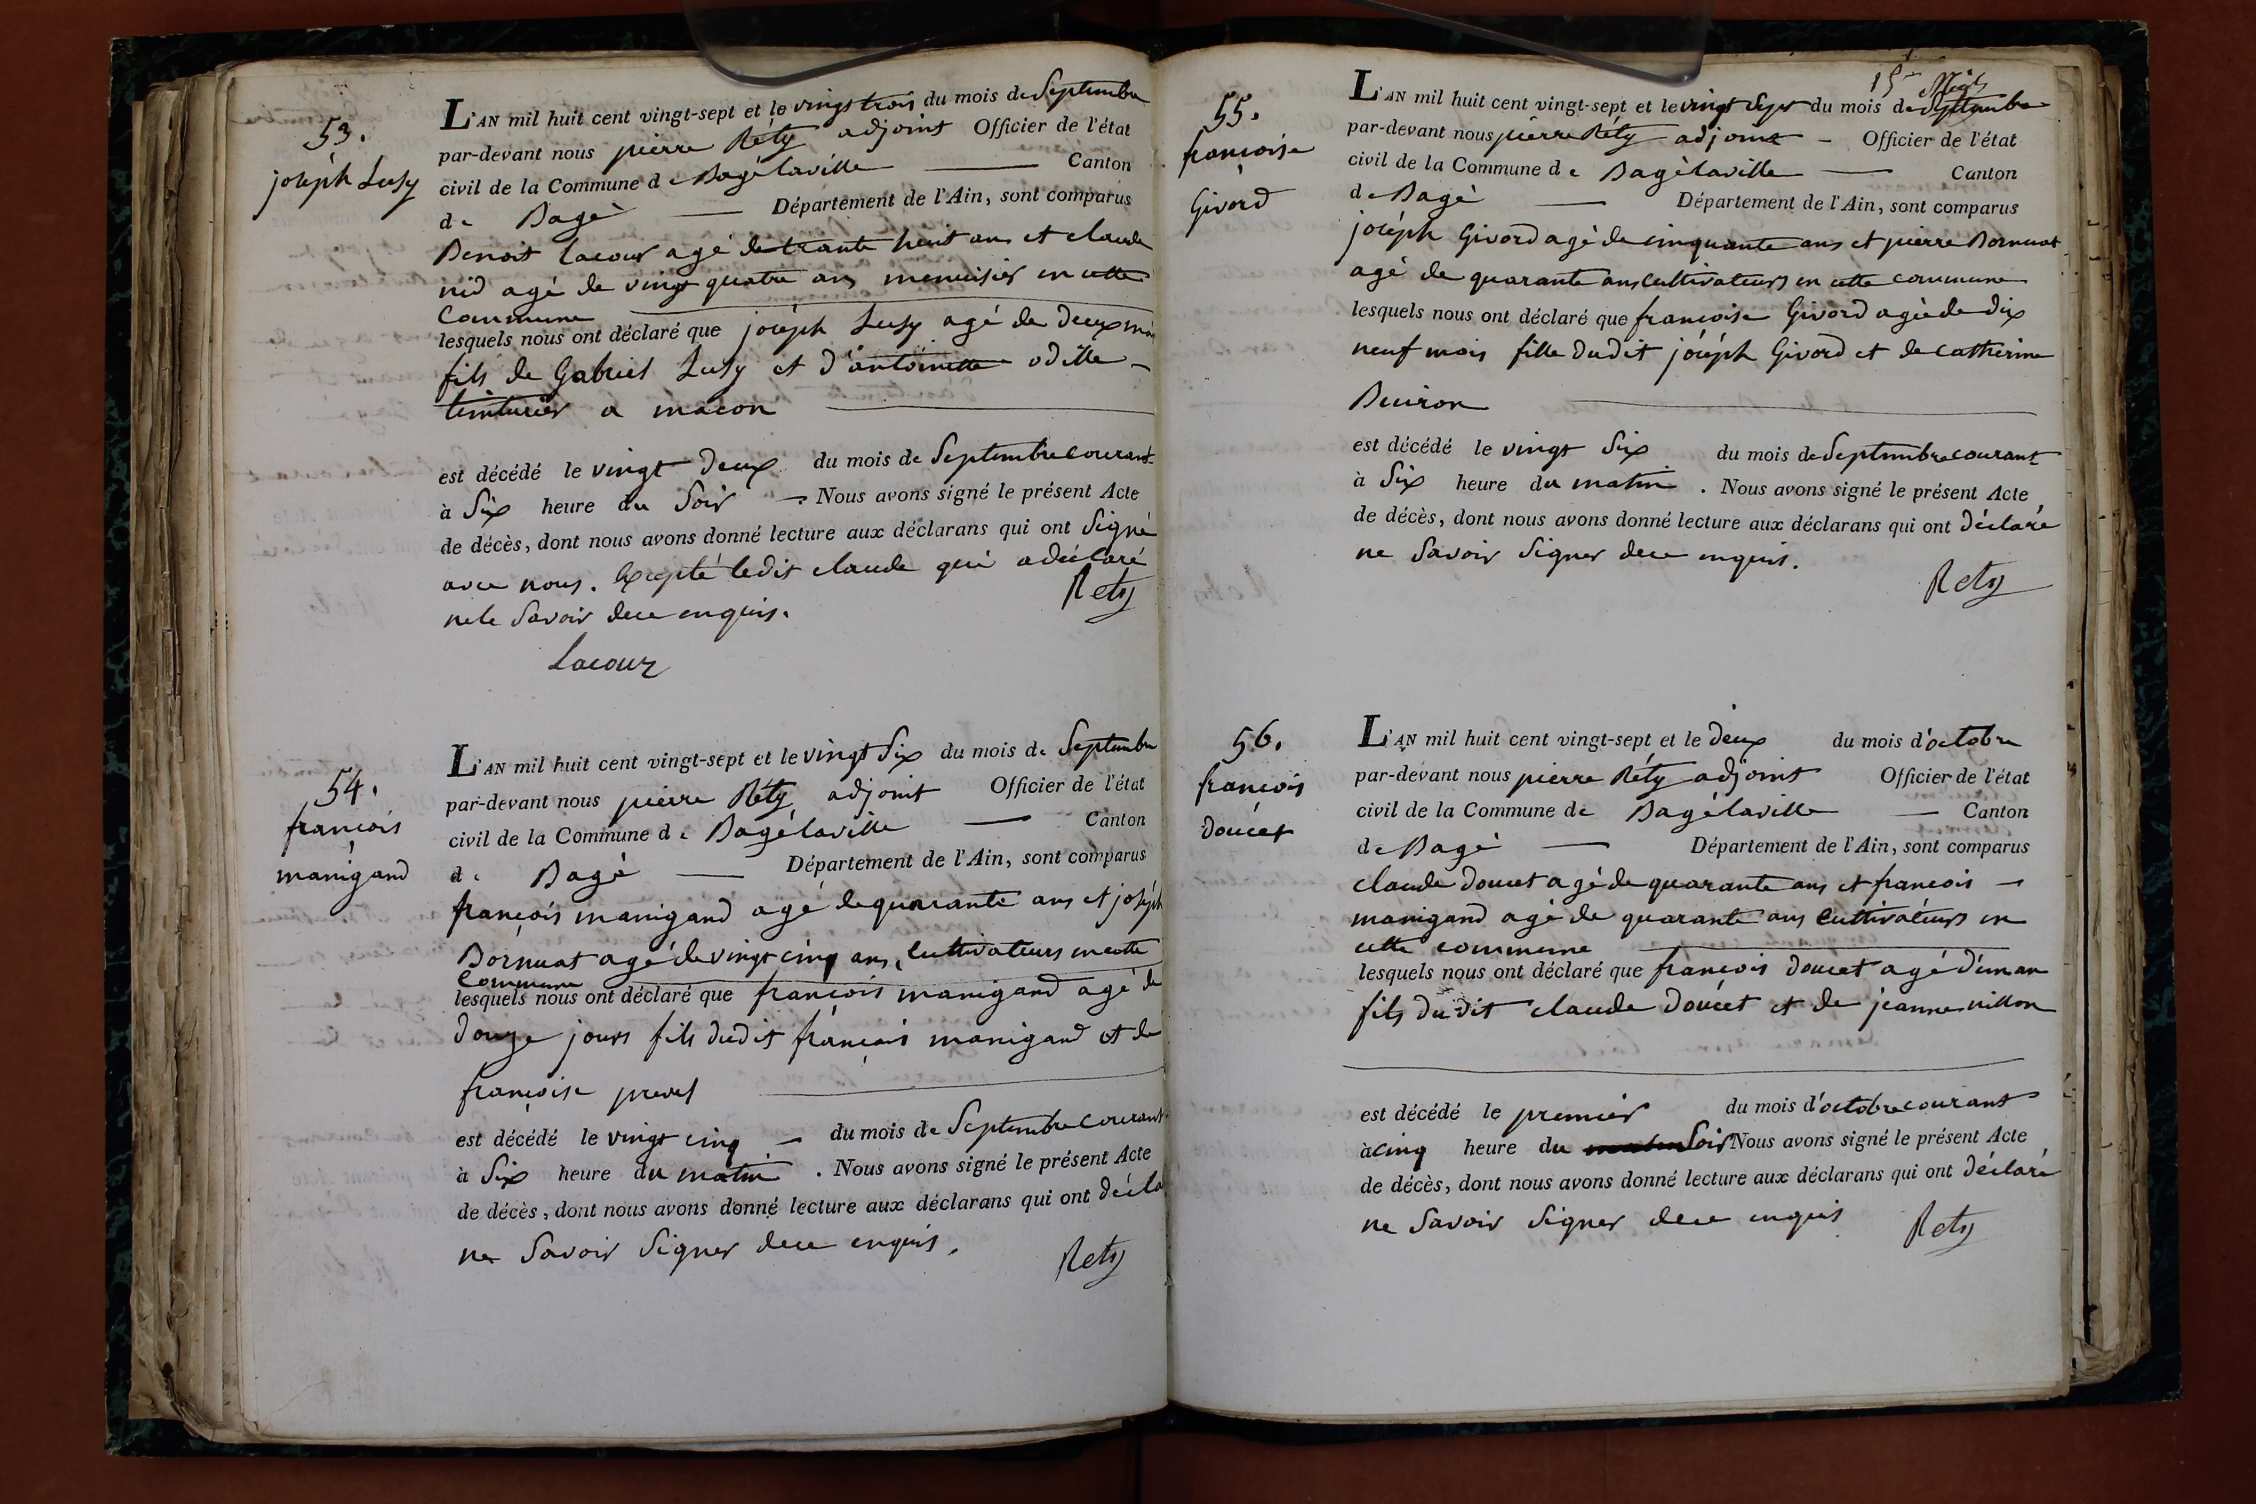 53.
joséph Lusy
L'AN mil huit cent vingt-sept et le vingt trois du mois de Septembre
par-devant nous pierre Réty adjoint Officier de l'état
civil de la Commune de Bagélaville Canton
de Bagé Département de l'Ain, sont comparus
Benoit Lacour agé de trante huit ans et claude
nid agé de vingt quatre ans menuisier en cette
commune
lesquels nous ont déclaré que joséph Lusy agé de deux mois
fils de Gabriel Lusy et d'antoinette odille
teinturier a macon
est décédé le vingt deux du mois de Septembre courant
à Six heure du Soir. Nous avons signé le présent Acte
de décès, dont nous avons donné lecture aux déclarans qui ont Signé
avec nous. Excepté ledit claude qui a déclaré
ne le Savoir dece enquis.
Rety
Lacour
54.
francois
manigand
L'AN mil huit cent vingt-sept et le vingt Six du mois de Septembre
par-devant nous pierre Réty adjoint Officier de l'état
civil de la Commune de Bagélaville Canton
de Bagé Département de l'Ain, sont comparus
francois manigand agé de quarante ans et joséph
Bornuat agé de vingt cinq ans, Cultivateurs en cette
Commune
lesquels nous ont déclaré que francois manigand agé de
douze jours fils dudit francois manigand et de
francoise prevel
est décédé le vingt cinq du mois de Septembre courant
à Six heure du matin. Nous avons signé le présent Acte
de décès, dont nous avons donné lecture aux déclarans qui ont décla
ne Savoir Signer dece enquis.
Rety
15
55.
francoise
Givord
L'AN mil huit cent vingt-sept et le vingt Sept du mois de Septembre
par-devant nous pierre Réty adjoint Officier de l'état
civil de la Commune de Bagélaville Canton
de Bagé Département de l'Ain, sont comparus
joséph Givord agé de cinquante ans et pierre Bornuat
agé de quarante ans Cultivateurs en cette commune
lesquels nous ont déclaré que francoise Givord agée de dix
neuf mois fille dudit joséph Givord et de catherine
Buiron
est décédé le vingt Six du mois de Septembre courant
à Six heure du matin. Nous avons signé le présent Acte
de décès, dont nous avons donné lecture aux déclarans qui ont déclaré
ne Savoir Signer dece enquis.
Rety
56.
francois
doucet
L'AN mil huit cent vingt-sept et le deux du mois d'octobre
par-devant nous pierre Réty adjoint Officier de l'état
civil de la Commune de Bagélaville Canton
de Bagé Département de l'Ain, sont comparus
claude doucet agé de quarante ans et francois
manigand agé de quarante ans Cultivateurs en
cette commune
lesquels nous ont déclaré que francois doucet agé d'un an
fils dudit claude doucet et de jeanne nillon
est décédé le premier du mois d'octobre courant
à cinq heure du matin Soir Nous avons signé le présent Acte
de décès, dont nous avons donné lecture aux déclarans qui ont déclaré
ne Savoir Signer dece enquis
Rety